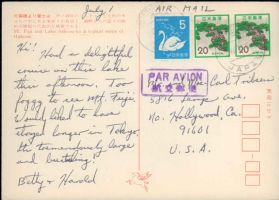 July 1
AIR MAIL
Mt. Fuji and Lake
Hakone.
Hi! Had a delightful
cruise on this lake
this afternoon. Too
foggy to see Mt. Fuji.
Would liked to have
stayed longer in Tokyo,
its tremendously large
and bustling!
Betty & Harold
5
日本郵便
20
日本郵便
20
日本郵便
JAPAN
PAR AVION
航空郵便
Carl
5816 Ave.
No. Hollywood, Ca.
91601
U.S.A.